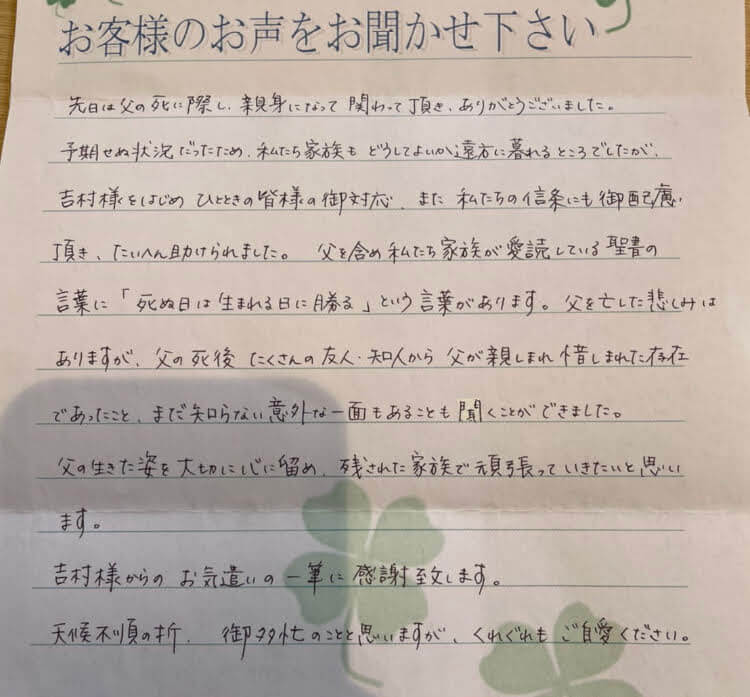 お客様のお声をお聞かせ下さい
先日は父の死に際し、親身になって関わって頂き、ありがとうございました。
予期せぬ状況だったため、私たち家族もどうしてよいか途方に暮れるところでしたが、
吉村様をはじめ ひとときの皆様の御対応、また 私たちの信条にも御配慮
頂き、たいへん助けられました。 父を含め私たち家族が愛読している聖書の
言葉に「死ぬ日は生まれる日に勝る」という言葉があります。父を亡した悲しみは
ありますが、父の死後 たくさんの友人・知人から 父が親しまれ 惜しまれた存在
であったこと、まだ知らない意外な一面もあることも聞くことができました。
父の生きた姿を大切に心に留め、残された家族で頑張っていきたいと思い
ます。
吉村様からの お気遣いの一筆に感謝致します。
天候不順の折、 御多忙のことと思いますが、くれぐれもご自愛ください。